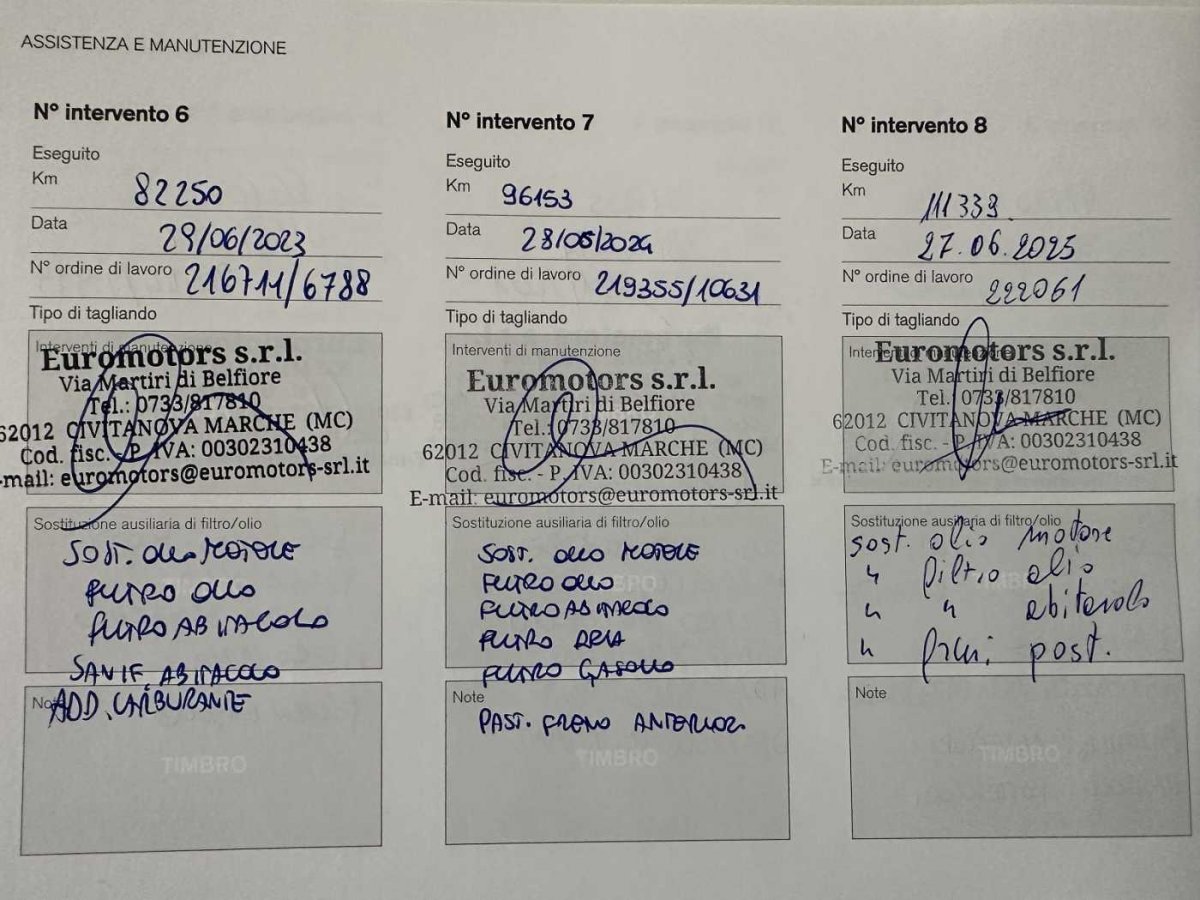 ASSISTENZA E MANUTENZIONE
N° intervento 6
Eseguito
Km 82250
Data 29/06/2023
N° ordine di lavoro 216711/6788
Tipo di tagliando
Interventi di manutenzione
Euromotors s.r.l.
Via Martiri di Belfiore
Tel.: 0733/817810
62012 CIVITANOVA MARCHE (MC)
Cod. fisc. - P. IVA: 00302310438
-mail: euromotors@euromotors-srl.it
Sostituzione ausiliaria di filtro/olio
SOST. OLIO MOTORE
FILTRO OLIO
FILTRO ABITACOLO
SANIF. ABITACOLO
Note
ADD. CARBURANTE
TIMBRO
N° intervento 7
Eseguito
Km 96153
Data 28/05/2024
N° ordine di lavoro 219355/10631
Tipo di tagliando
Interventi di manutenzione
Euromotors s.r.l.
Via Martiri di Belfiore
Tel.: 0733/817810
62012 CIVITANOVA MARCHE (MC)
Cod. fisc. - P. IVA: 00302310438
E-mail: euromotors@euromotors-srl.it
Sostituzione ausiliaria di filtro/olio
SOST. OLIO MOTORE
FILTRO OLIO
FILTRO ABITACOLO
FILTRO ARIA
FILTRO GASOLIO
Note
PAST. FRENO ANTERIORI
TIMBRO
N° intervento 8
Eseguito
Km 111339
Data 27.06.2025
N° ordine di lavoro 222061
Tipo di tagliando
Interventi di manutenzione
Euromotors s.r.l.
Via Martiri di Belfiore
Tel.: 0733/817810
62012 CIVITANOVA MARCHE (MC)
Cod. fisc. - P. IVA: 00302310438
E-mail: euromotors@euromotors-srl.it
Sostituzione ausiliaria di filtro/olio
sost. olio motore
" filtro olio
" " abitacolo
" freni post.
Note
TIMBRO